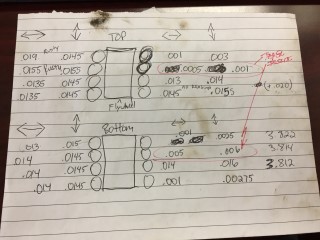 TOP
.019 .0145 .001 .003
.0155 .0155 .0005 .001
.0135 .0145 .013 .014
.0135 .0145 .0145 .0155
(+.020)
Flywheel
Bottom
.013 .015 .001 .0025 3.822
.014 .0145 .005 .006 3.814
.014 .0145 .014 .016 3.812
.014 .0145 .001 .00275